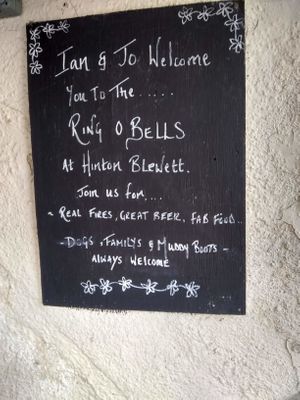 Ian & Jo Welcome
You To The.....
Ring O Bells
At Hinton Blewett.
Join us for....
~ Real Fires, Great Beer, Fab Food..
-Dogs, Familys & Muddy Boots -
Always Welcome